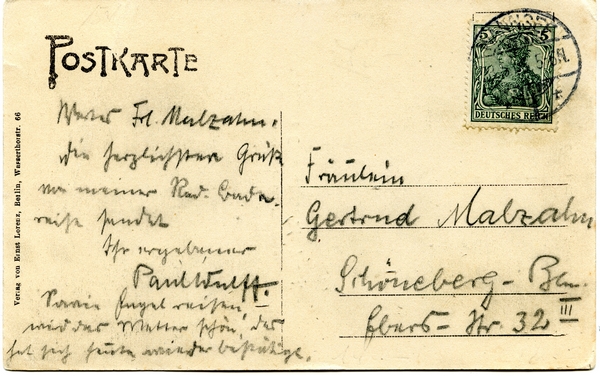 POSTKARTE
5 5
DEUTSCHES REICH
Wertes Frl. Malzahn.
die herzlichsten Grüße
von meiner Rad-
reise sendet
Ihr ergebener
Paul Wulff.
Engel reisen,
wird das Wetter schön, das
hat sich heute wieder bestätigt.
Fräulein
Gertrud Malzahn
Schöneberg-Bln.
Ebers-Str. 32 III
Verlag von Ernst Lorenz, Berlin, Wasserthorstr. 66